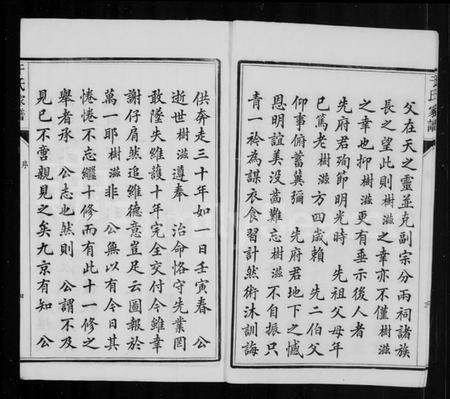 父在天之靈並克副宗分兩祠諸族
長之望此則樹滋之幸亦不僅樹滋
之幸也抑樹滋更有垂示後人者
先府君殉節明光時 先祖父母年
已篤老樹滋方四歲賴 先二伯父
仰事俯蓄冀彌 先府君地下之憾
恩明誼美沒齒難忘樹滋不自振只
青一衿為謀衣食習計然術沐訓誨
供奔走三十年如一日壬寅春 公
逝世樹滋遵奉 治命恪守先業罔
敢隕失維護十年完全交付今雖幸
謝仔肩然追維德意豈足云圖報於
萬一耶樹滋非 公無以有今日其
惓惓不忘繼十修而有此十一修之
舉者承 公志也然則 公謂不及
見已不啻親見之矣九京有知 公
氏家譜
序